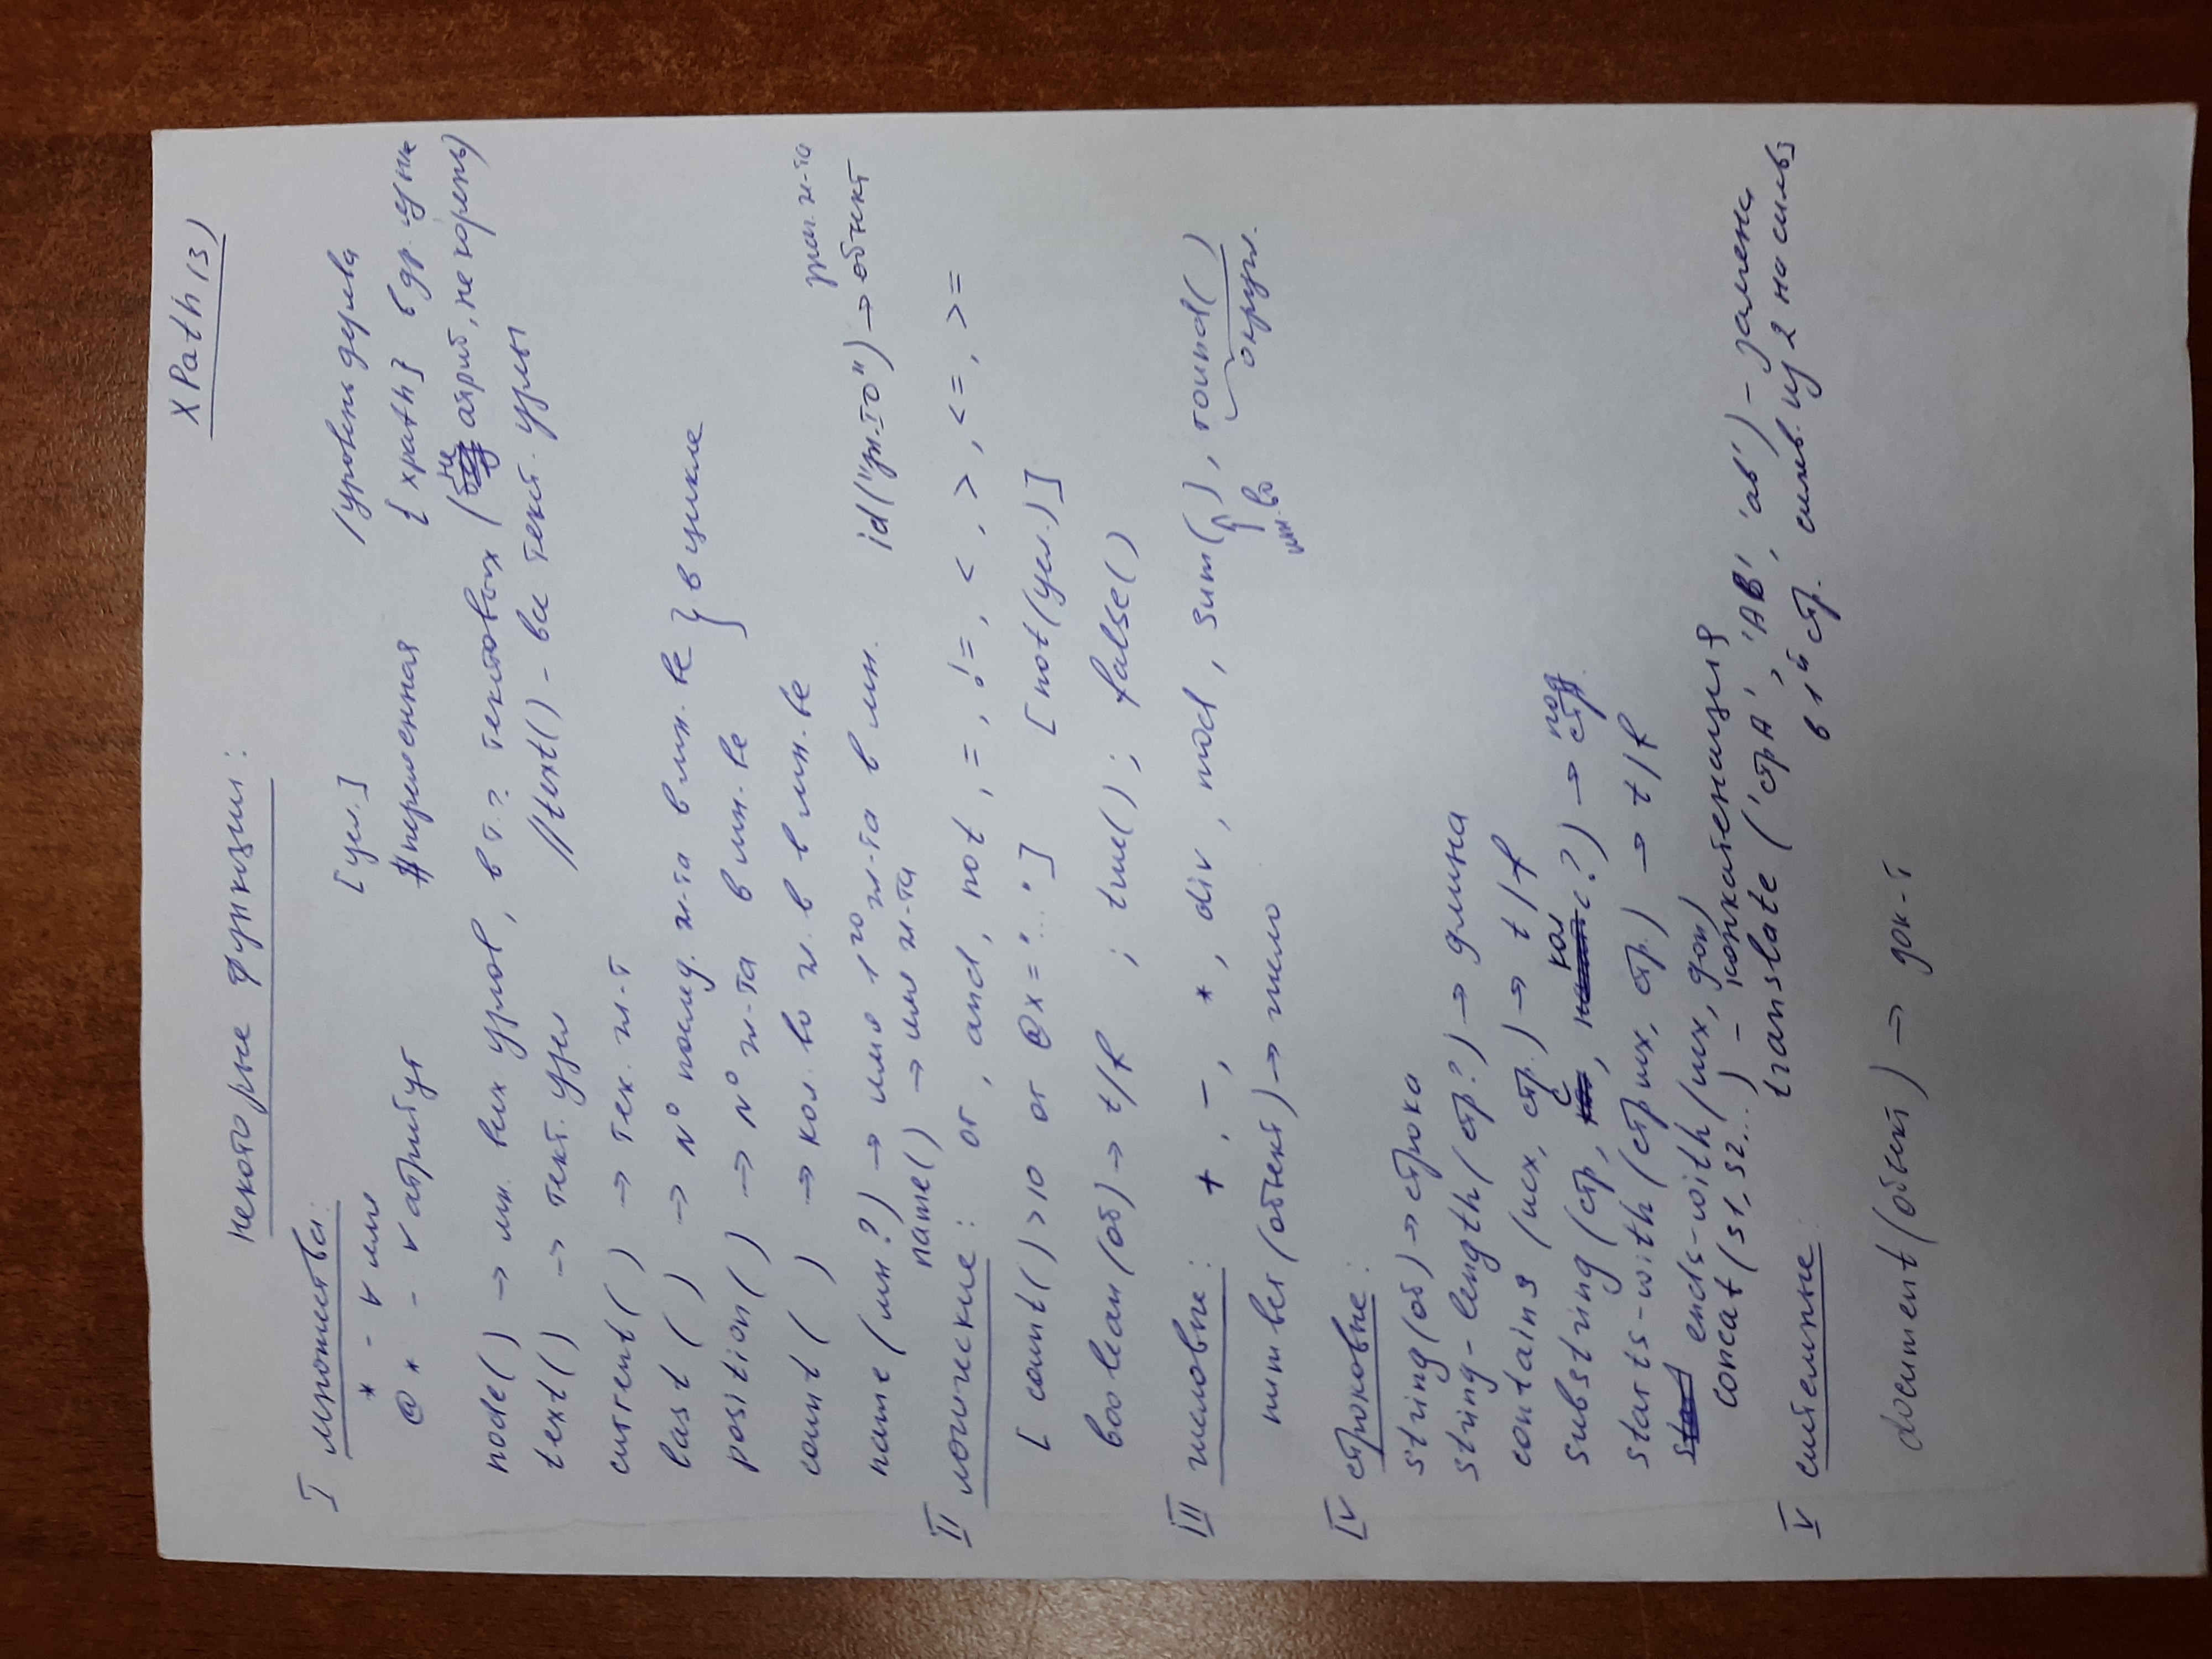 XPath (3)
некоторые функции:
I множества:
* - ∀ имя [усл.] /уровень дерева
@* - ∀ атрибут $переменная {xpath} в др. языке
node() → мн. всех узлов, в т.ч. текстовых (не атриб, не корень)
text() → текст. узел //text() - все текст. узлы
current( ) → тек. эл-т
last ( ) → № послед. эл-та в мн-ве } в цикле
position( ) → № эл-та в мн-ве
count ( ) → кол-во эл-в в мн-ве
знач. эл-та
name (мн?) → имя 1го эл-та в мн. id("зн.ID") → объект
name() → имя эл-та
II логические: or, and, not, =, !=, <, >, <=, >=
[ count()>10 or @x="..." ] [not(усл.)]
boolean(об) → t/f ; true() ; false()
III числовые: +, -, *, div, mod, sum( ), round( )
мн-во округл.
number(объект) → число
IV строковые:
string(об) → строка
string-length(стр?) → длина
contains (исх, стр.) → t/f
substring (стр, с, кол ?) → подстр.
starts-with(стр исх, стр.) → t/f
ends-with(исх, доп)
concat(s1, s2...) - конкатенация
translate ('стрА', 'АВ', 'ав') - замена
в 1й стр. симв. из 2 на симв 3
V системные:
document(объект) → док-т